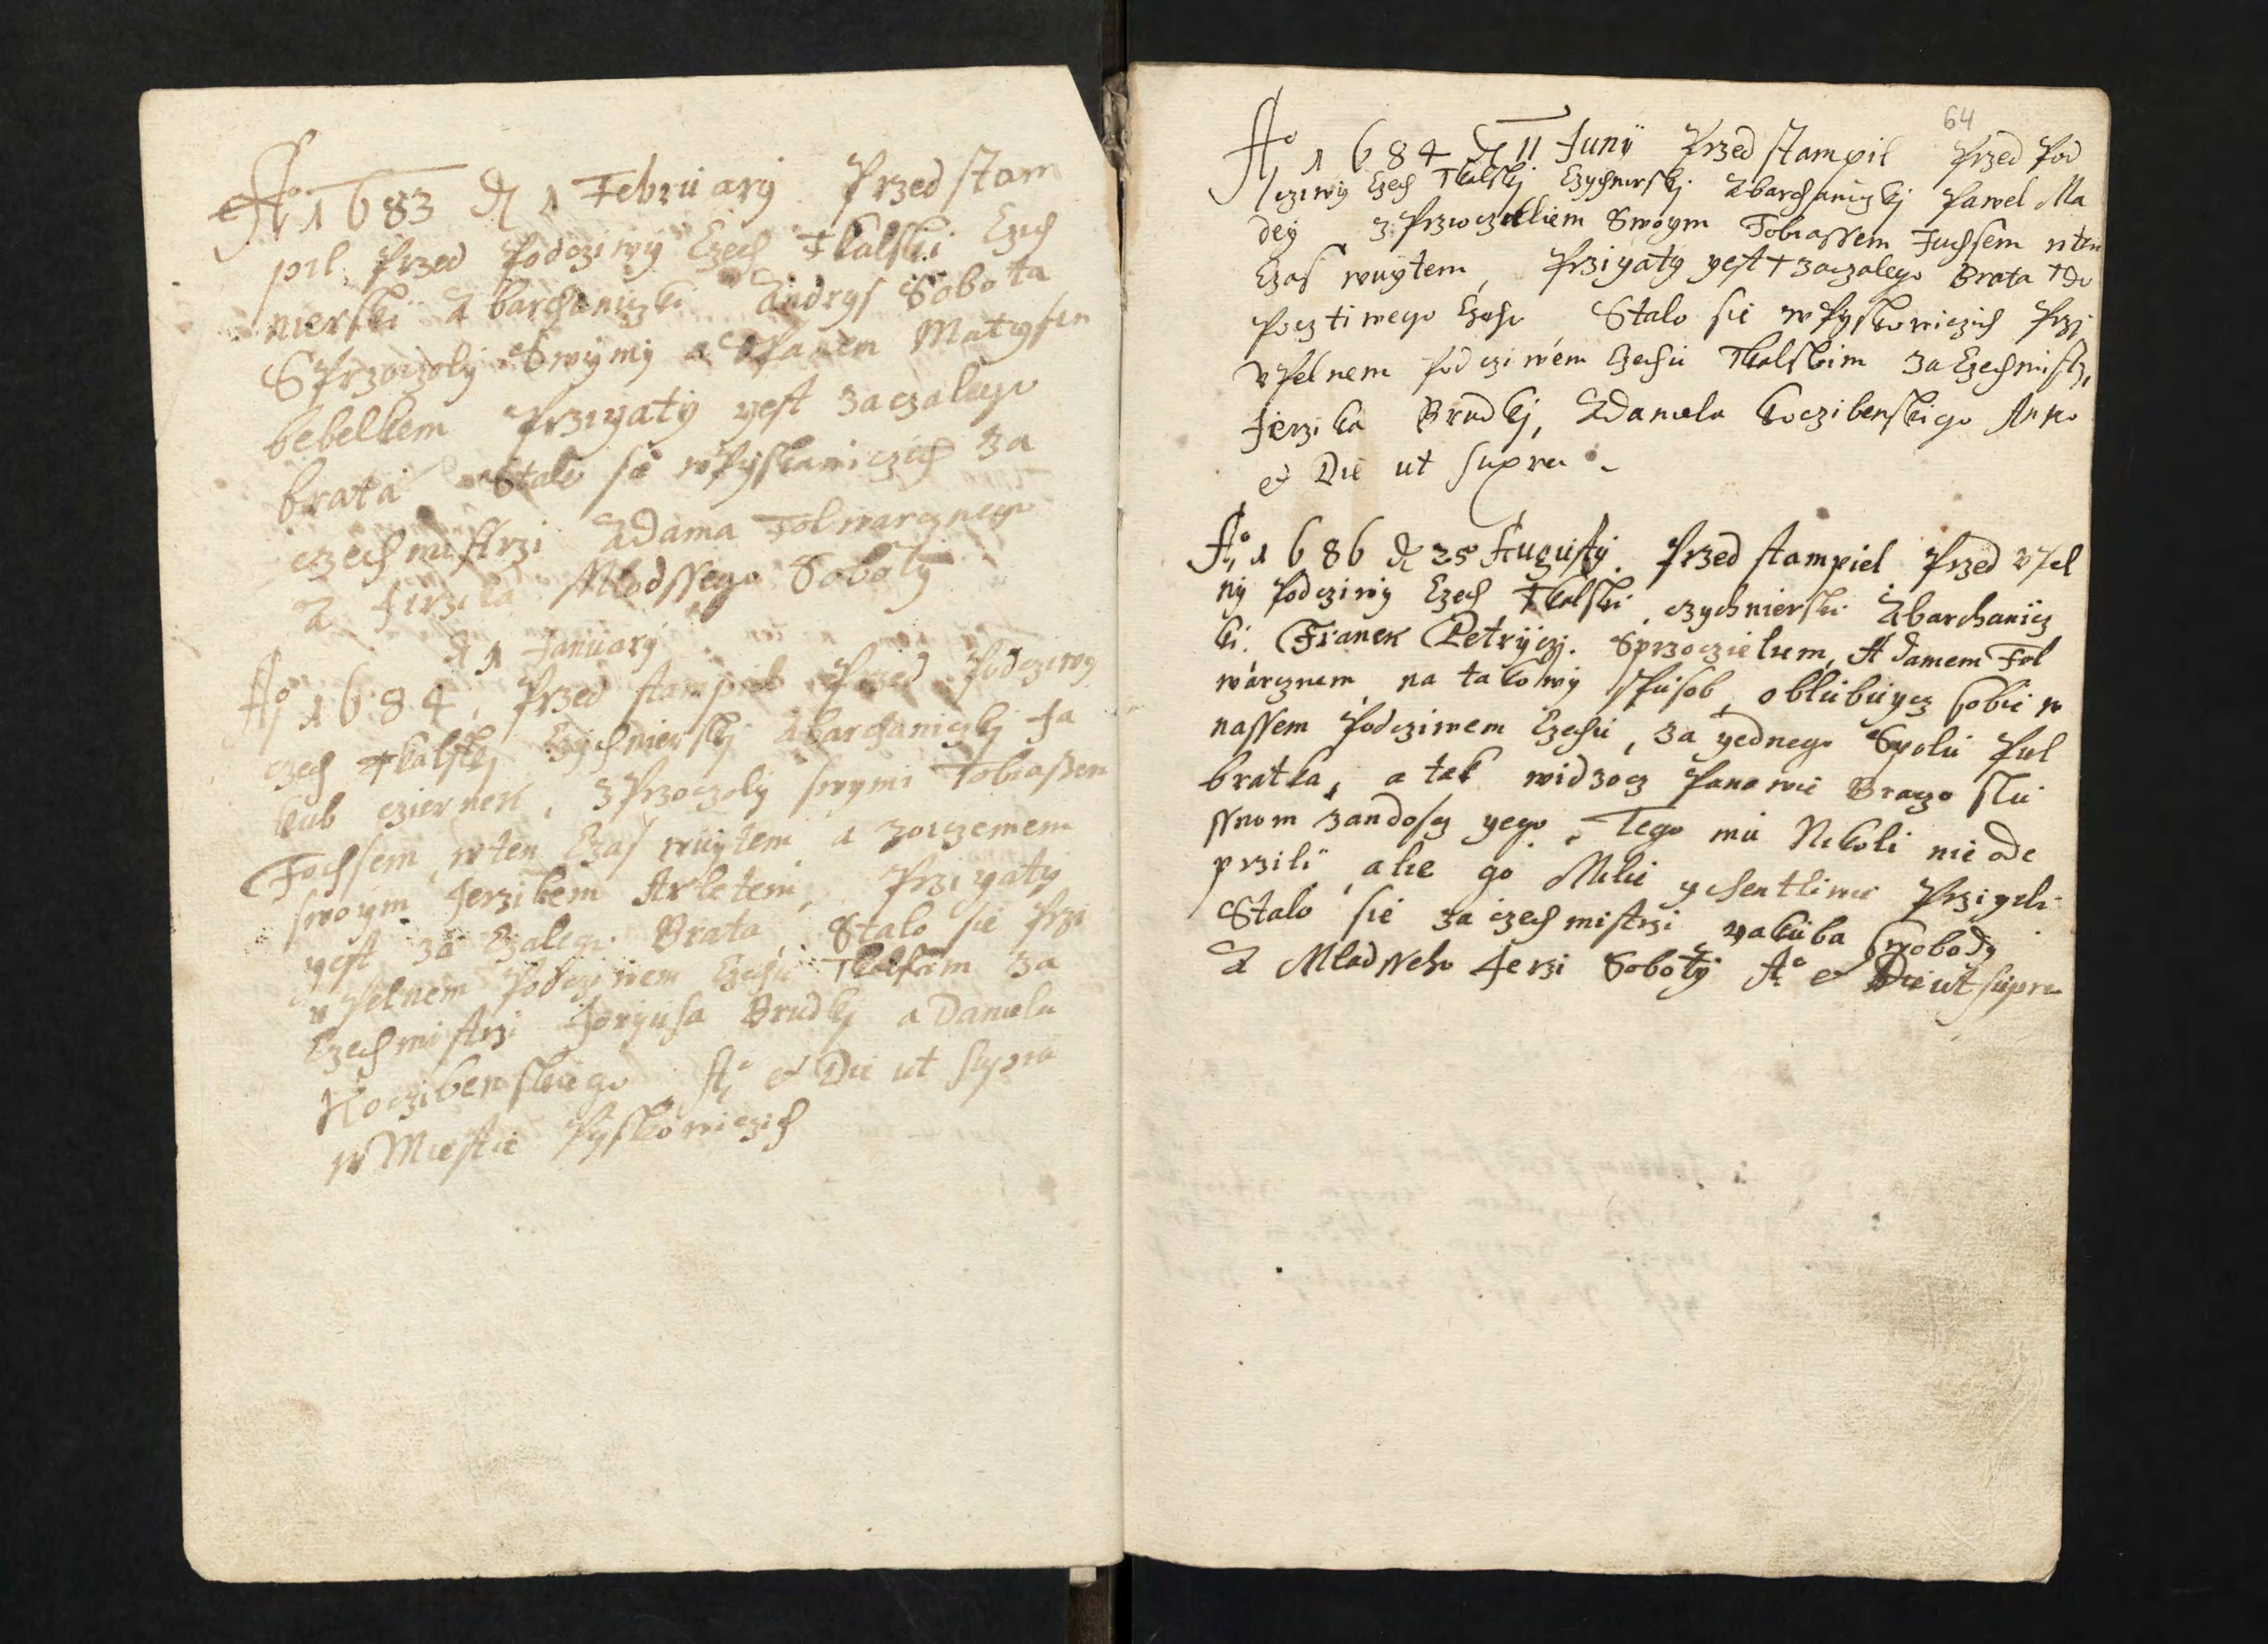 Ao 1683 d 1 Februarÿ Przed stam
pil Przed Podcziwÿ Czech Tkalski Czich
nierski A barchaniczki Andrys Sobota
S Przoczolÿ Swÿmÿ a Panem Matysem
bebelkem Przigatÿ gest za czalego
brata Stalo se w Pÿskowiczich Za
czechmistrzi Adama Folwarcznego
A Jirzika Mlodssego Sobotÿ
d 1 Januarÿ
Ao 1684, Przed stampil Przed Podcziwÿ
czech Tkalskj Czÿchnierskj A barchaniczkj Ja
kub cziernek, z Przoczolÿ swÿmi Tobiassem
Fochsem, w ten Czas wuÿtem a zoczemem
swoÿm Jerzikem Arletem, Przigatÿ
gest za Czalego Brata, Stalo sie Przi
v Pelnem Podcziwem Czechu Tkalskim za
Czechmistrzi Jorgusa Brudkj a Daniela
Koczibenskiego Ao et Die ut supra
w Miestie Pÿskowiczich
64
Ao 1684 d 11 Junÿ Przed stampil Przed Pod
cziwÿ Czech Tkalskj Czÿchnierskj A barchaniczkj Pawel Ma
deÿ z Przoczelkiem Swoÿm Tobiassem Fuchsem w ten
Czas wuÿtem, Przigatÿ gest + za czalego Brata + do
Pocztiwego Czechu Stalo sie w Pÿskowiczich Przj
v Pelnem Podcziwem Czechu Tkalskim Za Czechmistrz,
Jerzika Brudkj, A Daniela Koczibenskigo Anno
et Die ut supra
Ao 1686 d 25 Augustÿ. Przed stampiel Przed v Pel
nÿ Podcziwÿ Czech Tkalski czÿchnierski A barchanicz
ki. Franek Petrÿczj. S przoczielem, Adamem Fol
warcznem na takowÿ spusob, oblubugcz sobie w
nassem Podcziwem Czechu, za gednego Spolu Pul
bratka, a tak widzocz Panowie Braczo slu
ssnom zandoscz gego, Tego mu Nikoli nie ode
przili, ale go Mile ÿ chentliwie Przigeli
Stalo sie za czechmistrzi Jakuba Swobodÿ
A Mladsseho Jerzi Sobotÿ Ao et Die ut supra